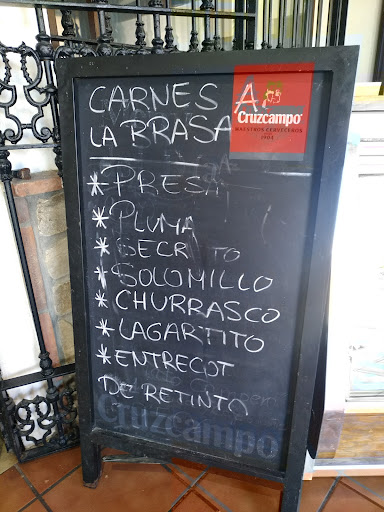 CARNES A
LA BRASA
Cruzcampo
MAESTROS CERVECEROS
1904
* PRESA
* PLUMA
* SECRETO
* SOLOMILLO
* CHURRASCO
* LAGARTITO
* ENTRECOT
DE RETINTO
Cruzcampo